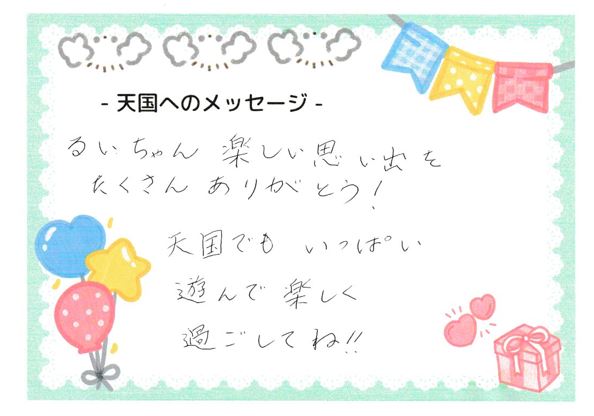 - 天国へのメッセージ -
るいちゃん 楽しい思い出を
たくさん ありがとう!
天国でも いっぱい
遊んで 楽しく
過ごしてね!!